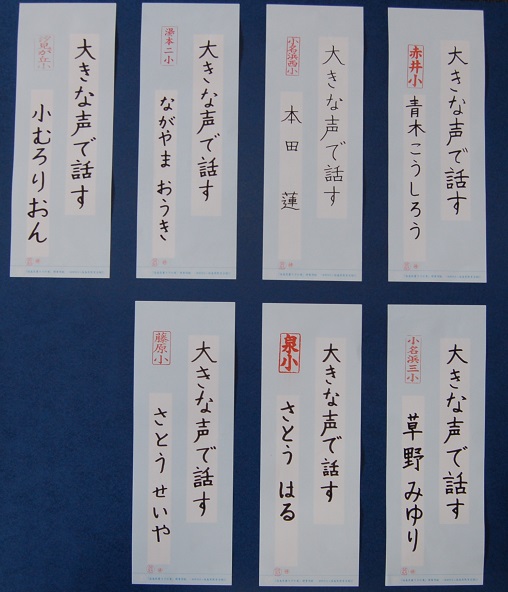 大きな声で話す
赤井小
青木こうしろう
大きな声で話す
小名浜西小
本田 蓮
大きな声で話す
湯本二小
ながやま おうき
大きな声で話す
汐見が丘小
小むろりおん
大きな声で話す
小名浜三小
草野 みゆり
大きな声で話す
泉小
さとう はる
大きな声で話す
藤原小
さとう せいや